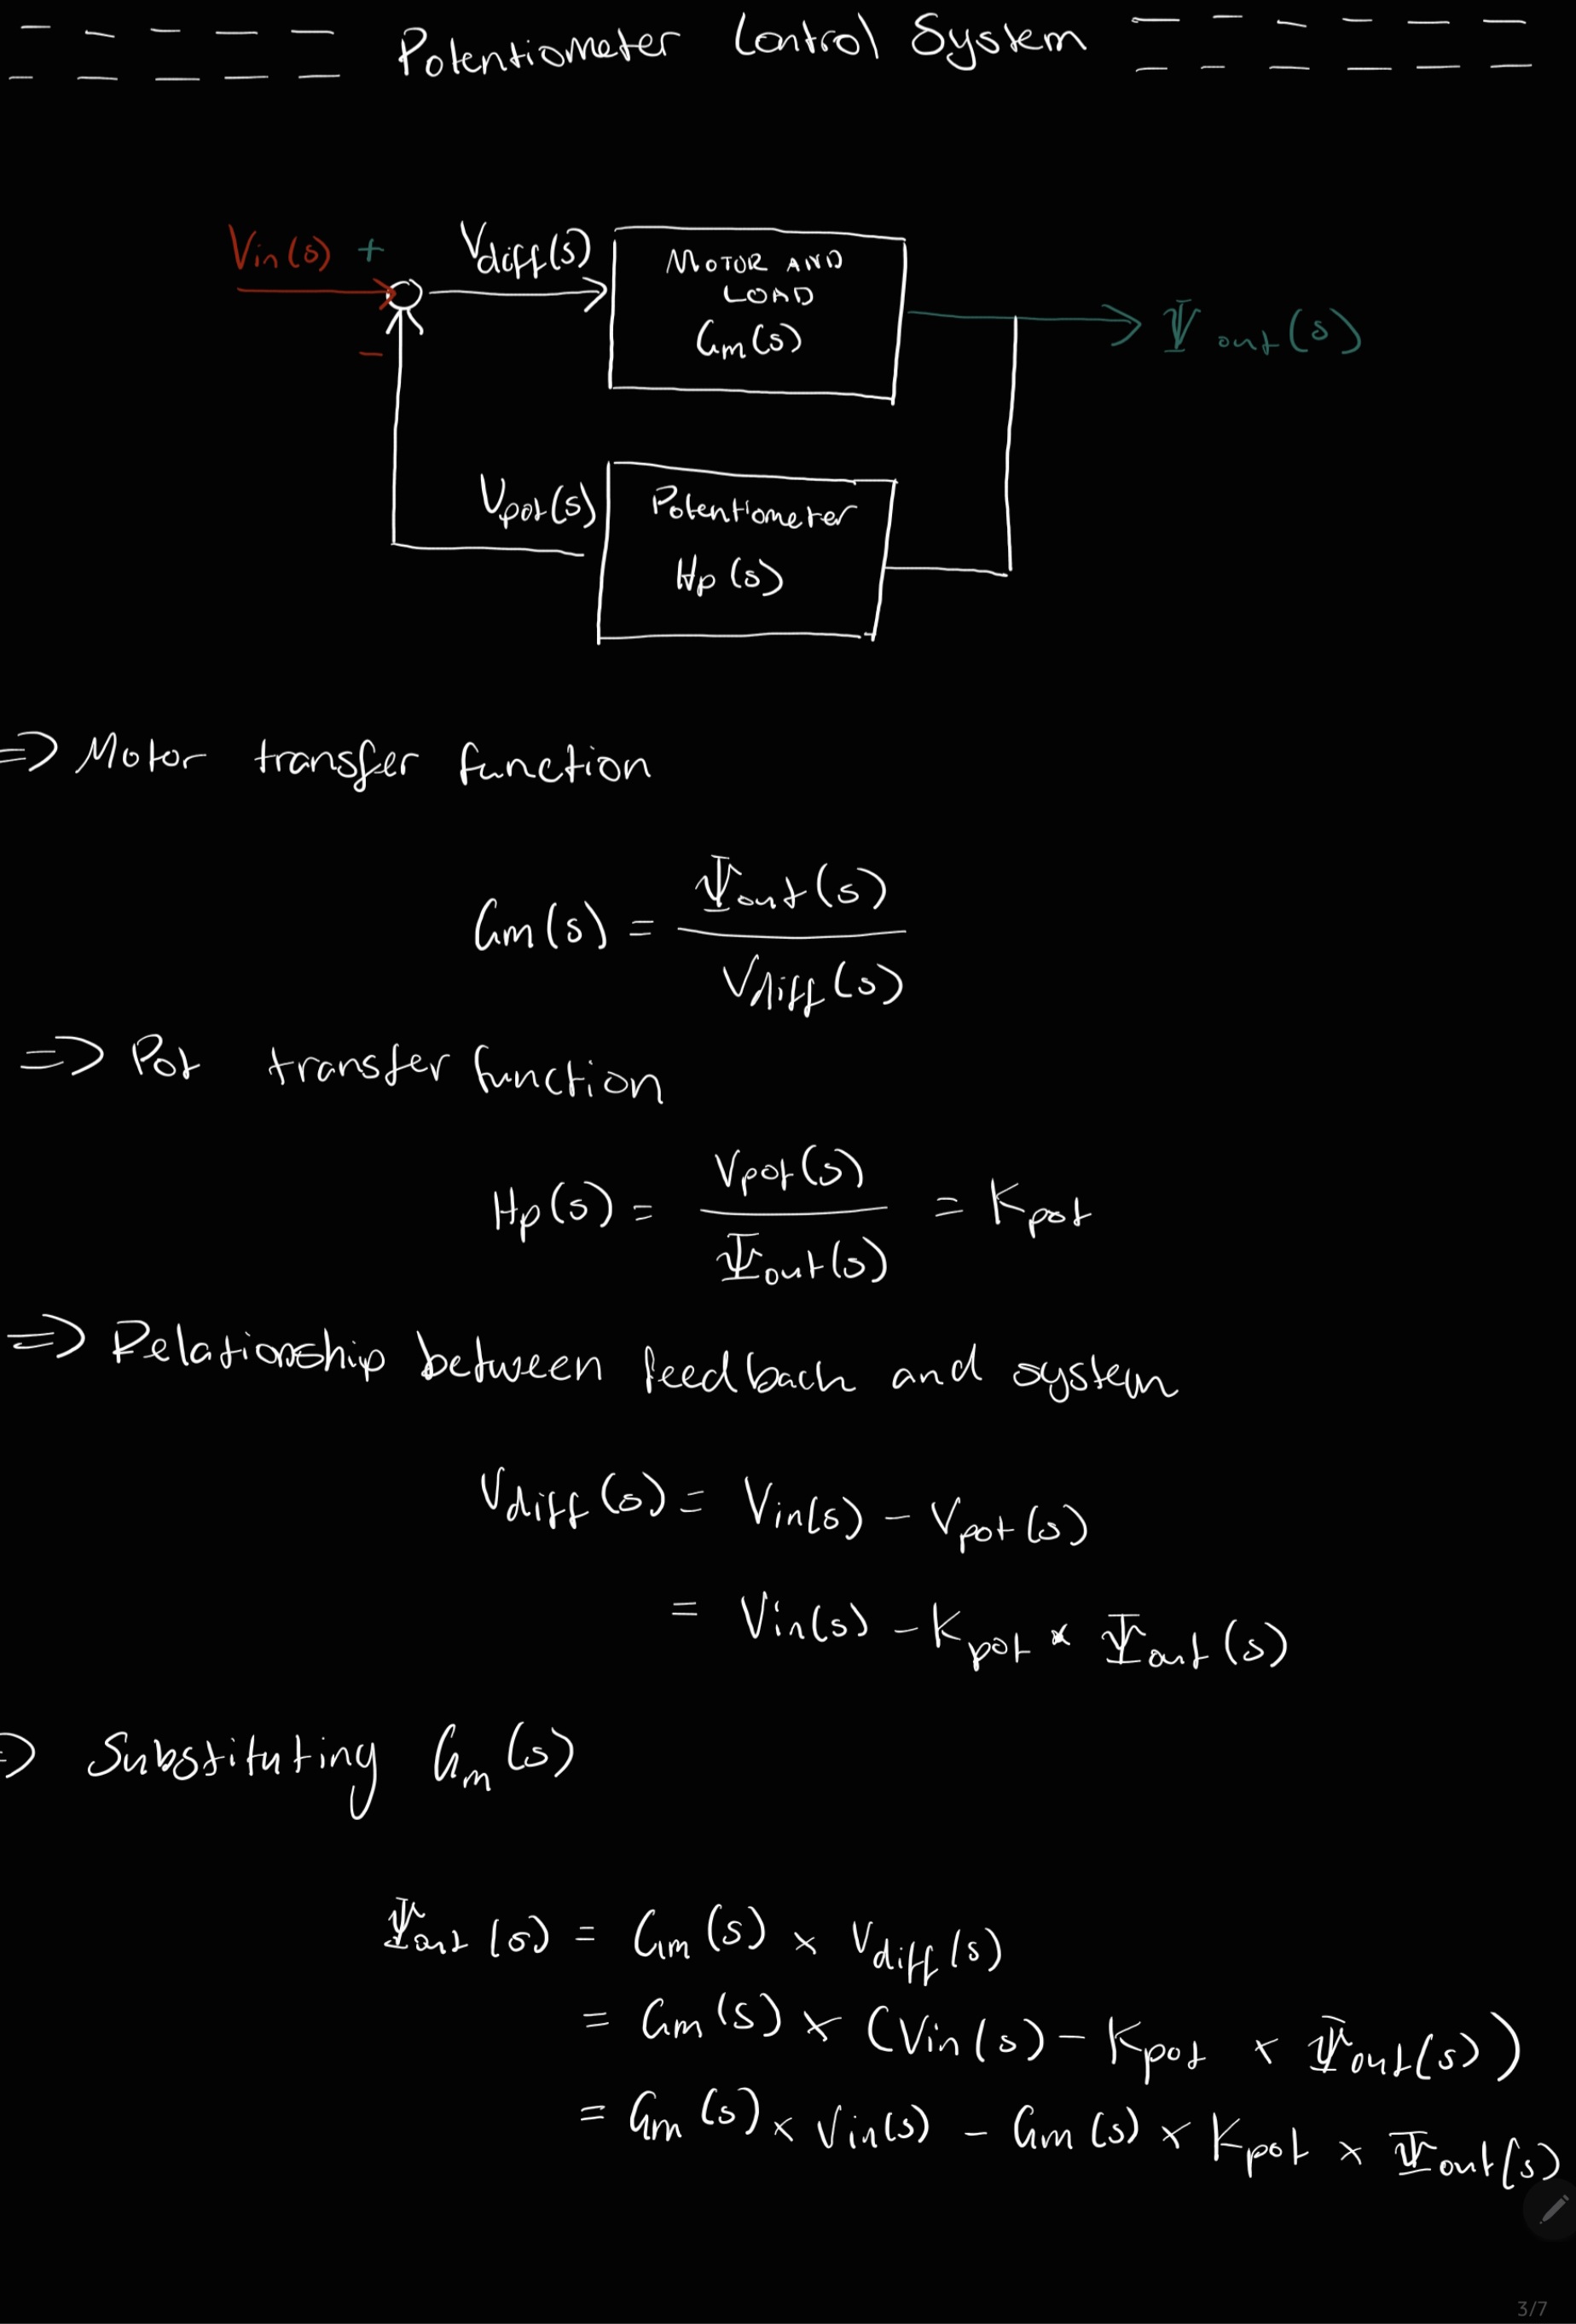 Potentiometer Control System
Vin(s) +
Vdiff(s)
MOTOR AND
LOAD
Gm(s)
Ψout(s)
-
Vpot(s)
Potentiometer
Hp(s)
=> Motor transfer function
Gm(s) = Ψout(s) / Vdiff(s)
=> Pot transfer function
Hp(s) = Vpot(s) / Ψout(s) = Kpot
=> Relationship between feedback and system
Vdiff(s) = Vin(s) - Vpot(s)
= Vin(s) - Kpot × Ψout(s)
=> Substituting Gm(s)
Ψout(s) = Gm(s) × Vdiff(s)
= Gm(s) × (Vin(s) - Kpot × Ψout(s))
= Gm(s) × Vin(s) - Gm(s) × Kpot × Ψout(s)
3/7